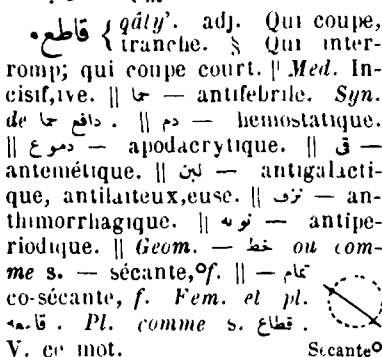 قاطع • { qâty'. adj. Qui coupe,
tranche. § Qui inter-
romp; qui coupe court. || Med. In-
cisif,ive. || حما — antifebrile. Syn.
de دافع حما. || دم — hemostatique.
|| دموع — apodacrytique. || قى —
antemétique. || لبن — antigalacti-
que, antilaiteux,euse. || نزف — an-
thimorrhagique. || نوبه — antipe-
riodique. || Geom. — خط ou com-
me s. — sécante,°f. || تمام —
co-sécante, f. Fem. et pl.
قاطعه. Pl. comme s. قطاع.
V. ce mot.
Secante°